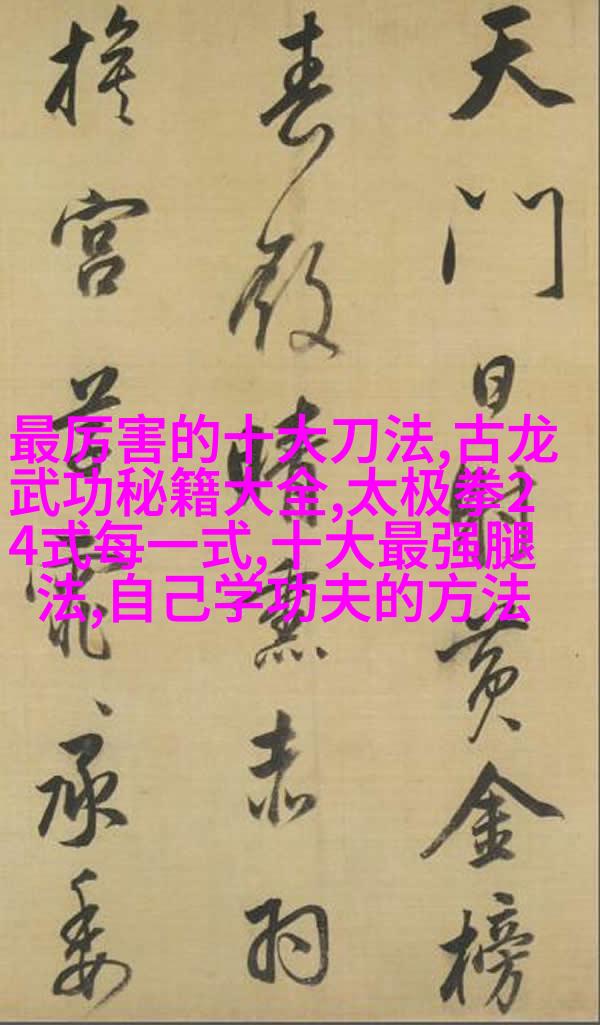 天門日射黃金榜
春殿晴熏赤羽
旗宮草霏丶承委
最厉害的十大刀法,古龙
武功秘籍大全,太极拳2
4式每一式,十大最强腿
法,自己学功夫的方法